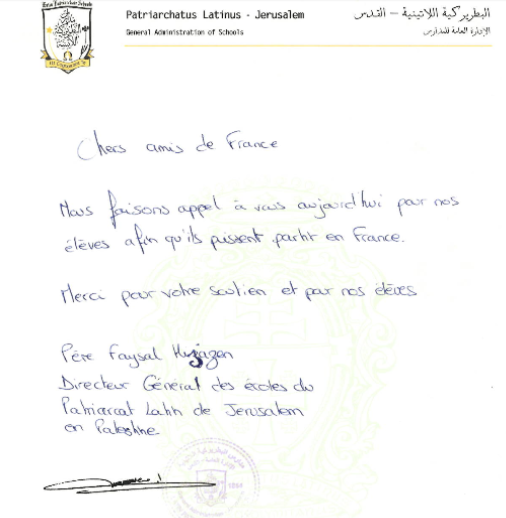 Patriarchatus Latinus - Jerusalem
General Administration of Schools
البطريركية اللاتينية – القدس
الإدارة العامة للمدارس
Chers amis de France
Nous faisons appel à vous aujourd'hui pour nos
élèves afin qu'ils puissent partir en France.
Merci pour votre soutien et par nos élèves
Père Faysal Hijazen
Directeur Général des écoles du
Patriarcat Latin de Jerusalem
en Palestine.